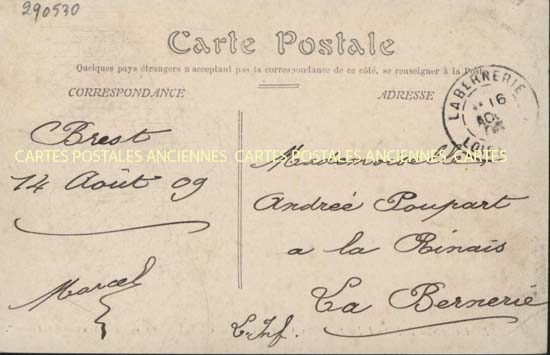 290530
Carte Postale
Quelques pays étrangers n'acceptant pas la correspondance de ce côté, se renseigner à la Poste
CORRESPONDANCE
ADRESSE
LA BERNERIE
16
Brest
14 Août 09
Marcel
CARTES POSTALES ANCIENNES CARTES POSTALES ANCIENNES
Mademoiselle
Andrée Poupart
a la Rinais
La Bernerie
L-Inf.